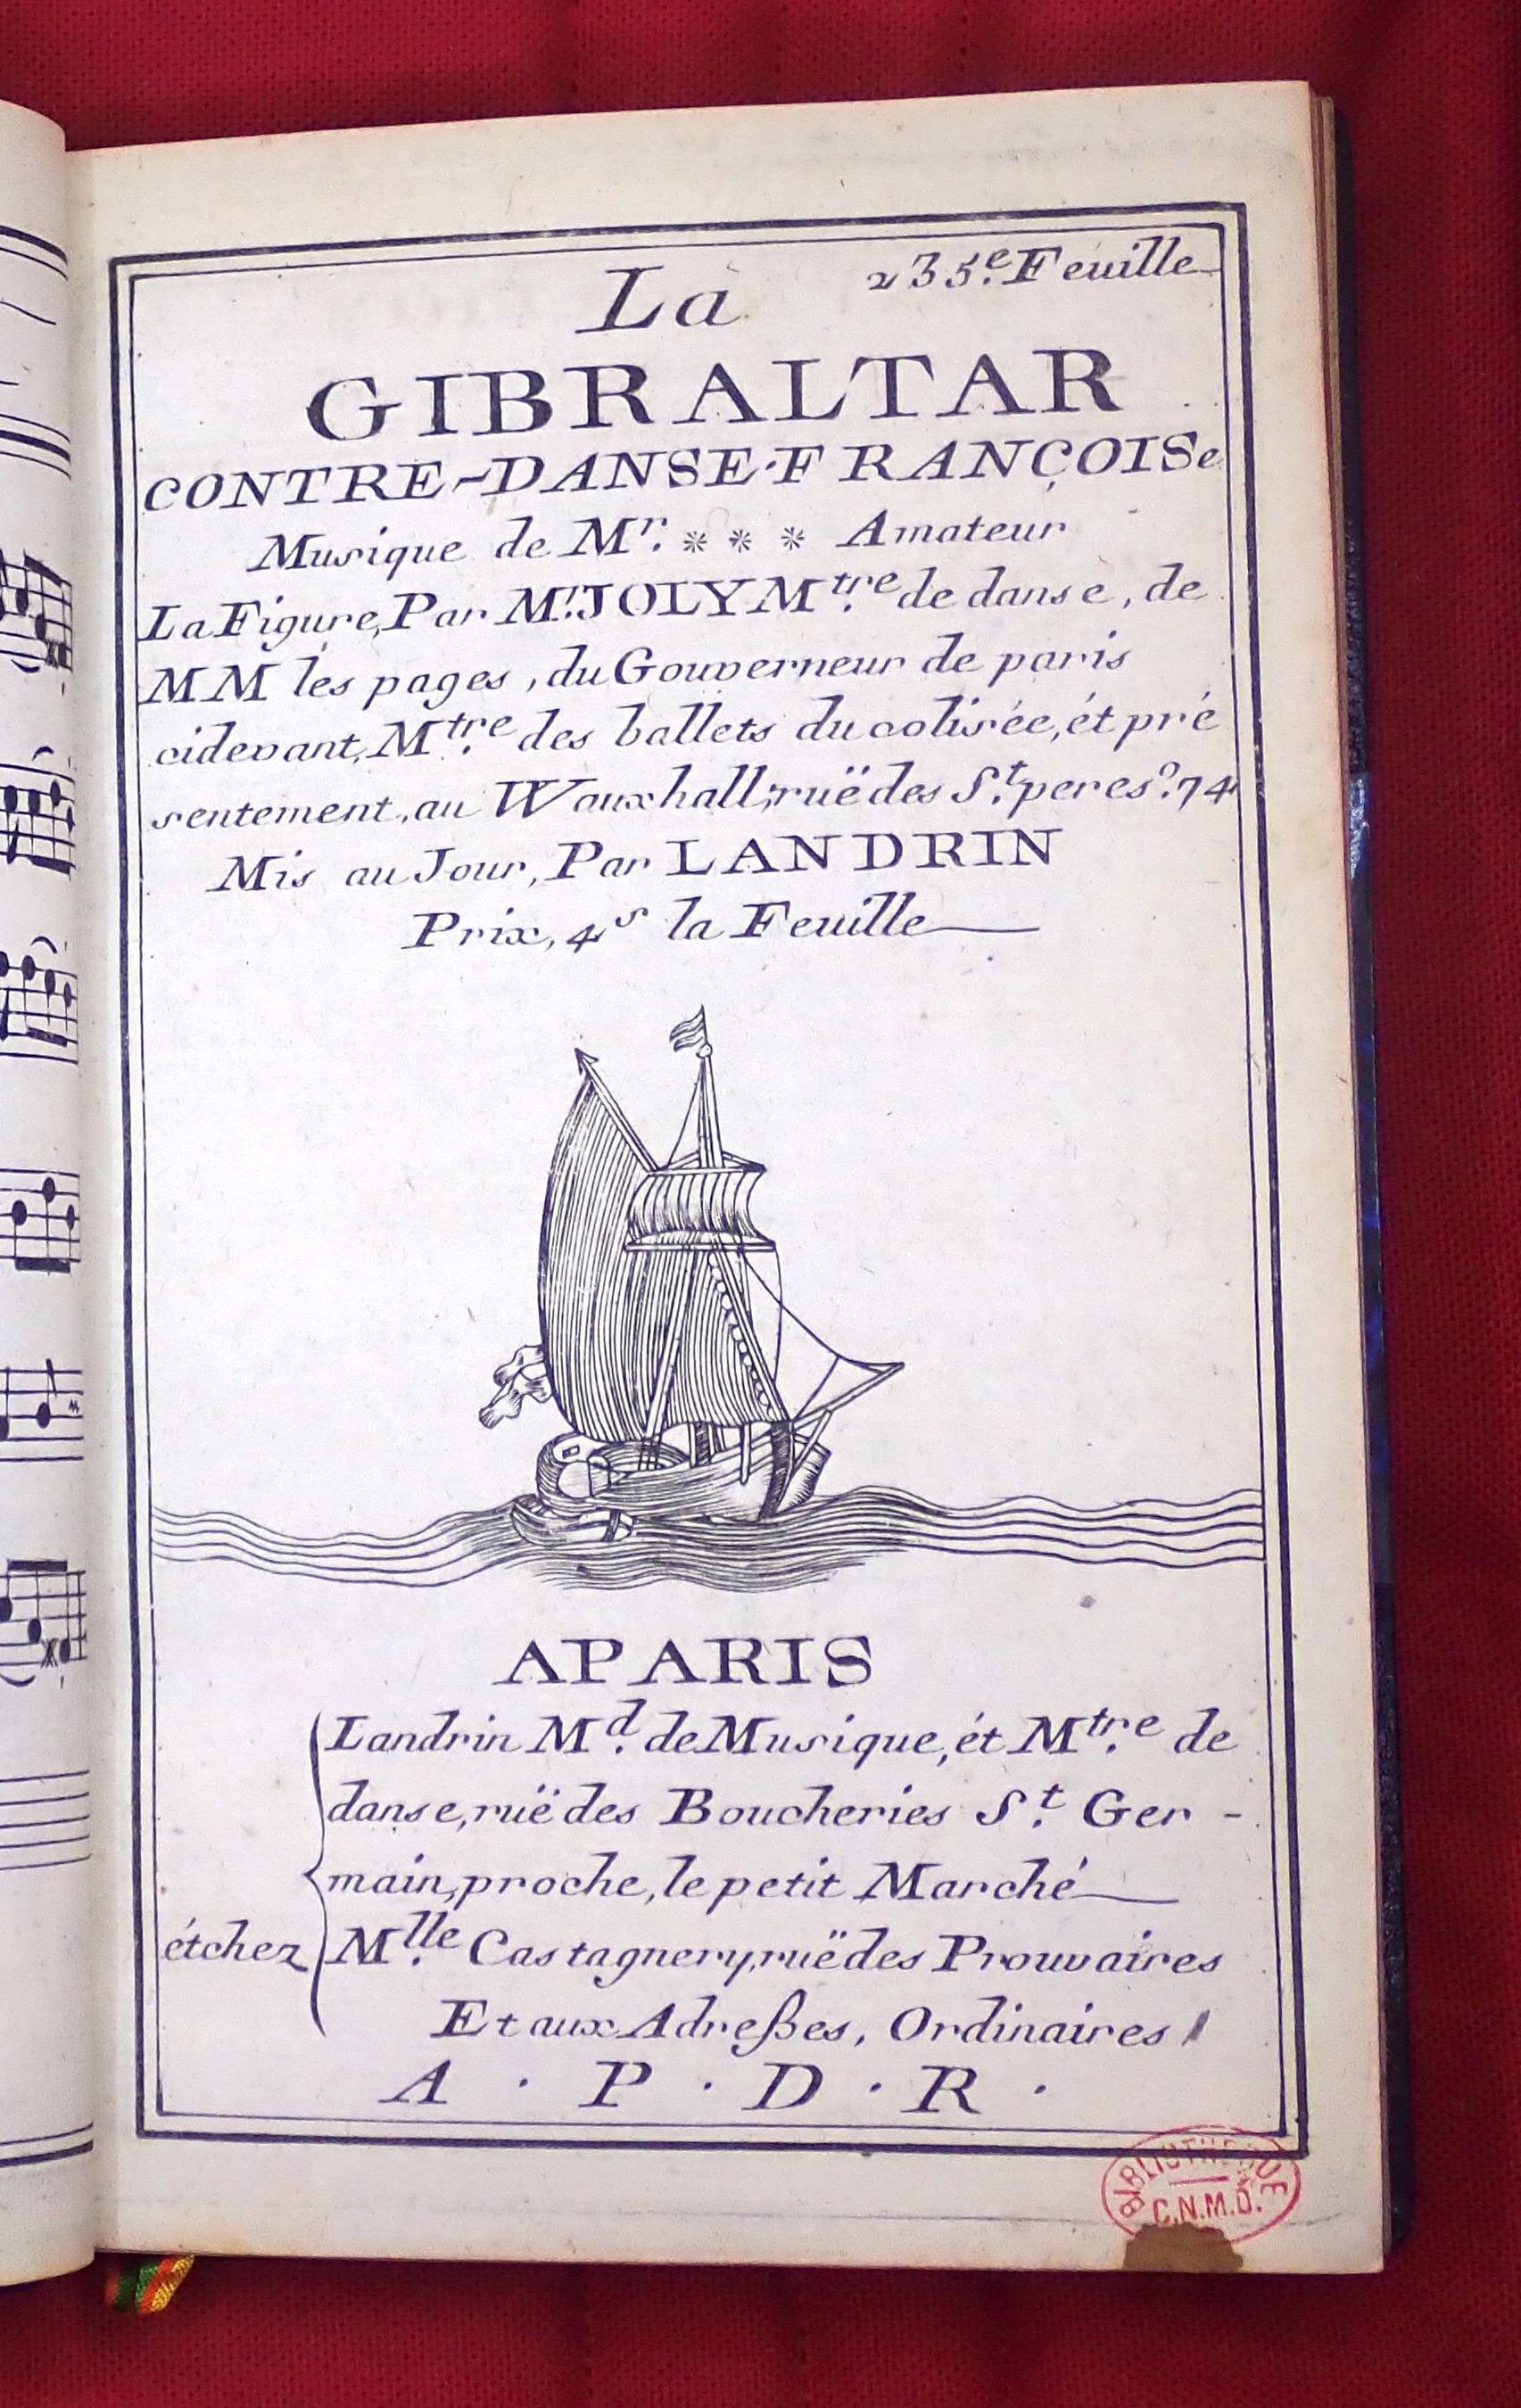 235.e Feuille
La
GIBRALTAR
CONTRE-DANSE·FRANÇOISe
Musique de Mr. * * * Amateur
La Figure, Par Mr. JOLY Mtre. de danse, de
MM les pages, du Gouverneur de paris
cidevant, Mtre. des ballets du colisée, ét pré
sentement, au Wauxhall; ruë des St. peres º.74
Mis au Jour, Par LANDRIN
Prix, 4s la Feuille
A PARIS
Landrin Md. de Musique, ét Mtre. de
danse, ruë des Boucheries St. Ger-
main, proche, le petit Marché
étchez Mlle. Castagnery, ruë des Prouvaires
Et aux Adreßes, Ordinaires
A · P · D · R ·
BIBLIOTHEQUE
C.N.M.D.